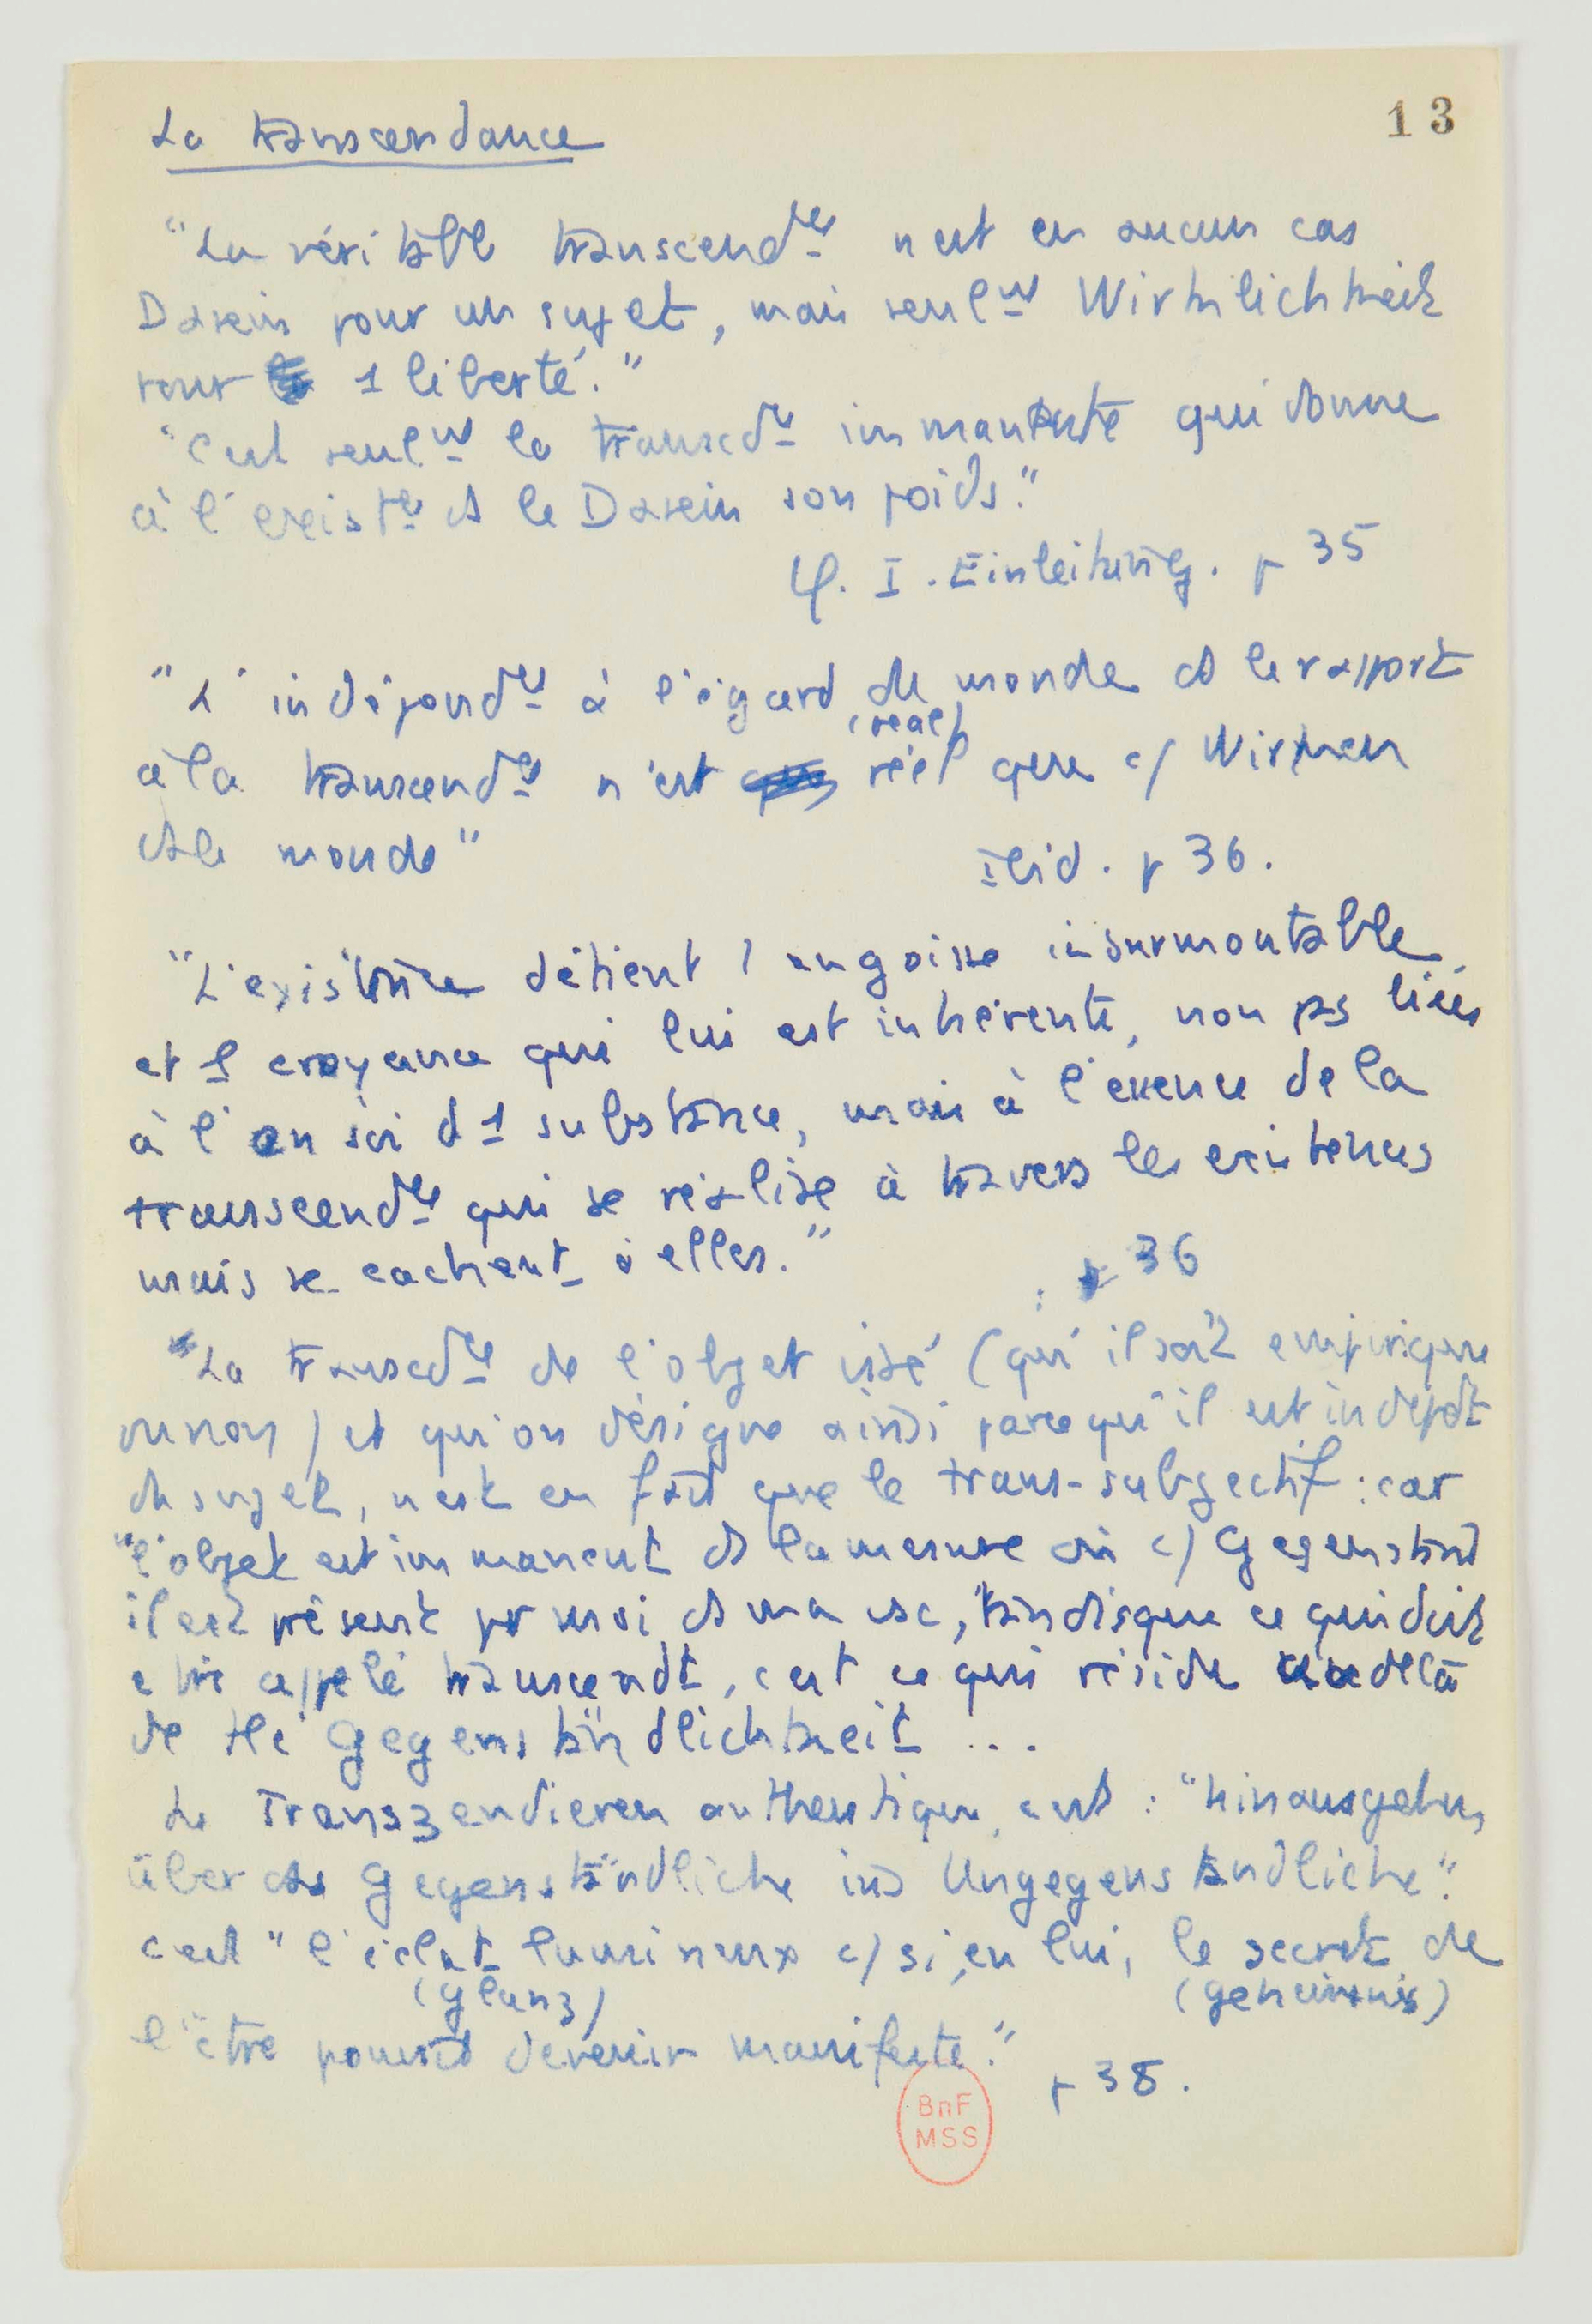 La transcendance
13
"La véritable transcend^ce n'est en aucun cas
Dasein pour un sujet, mais seul^nt Wirklichkeit
pour 1 liberté."
"C'est seul^nt la transcd^ce immanente qui donne
à l'exist^ce ds le Dasein son poids."
φ. I. Einleitung. p 35
"L'indépend^ce à l'égard du monde et le rapport
(real)
à la transcend^ce n'est réel que c/ Wirken
ds le monde"
Ibid. p 36.
"L'existence détient l'angoisse insurmontable
et 1 croyance qui lui est inhérente, non ps liées
à l'en soi d 1 substance, mais à l'essence de la
transcend^ce qui se réalise à travers les existences
mais se cachent à elles."
p 36
"La transcd^ce de l'objet visé (qu'il soit empirique
ou non) et qu'on désigne ainsi parce qu'il est indépdt
du sujet, n'est en fait que le trans-subjectif : car
"l'objet est immanent ds la mesure où c/ Gegenstand
il est présent pr moi ds ma csc, tandis que ce qui doit
être appelé transcendt, c'est ce qui réside au delà
de tte Gegenständlichkeit ...
Le Transzendieren authentique, c'est : "hinausgehen
über das Gegenständliche ins Ungegenständliche".
c'est "l'éclat lumineux c/ si, en lui, le secret de
(Glanz) (Geheimnis)
l'être pouvait devenir manifeste."
p 38.
BnF
MSS